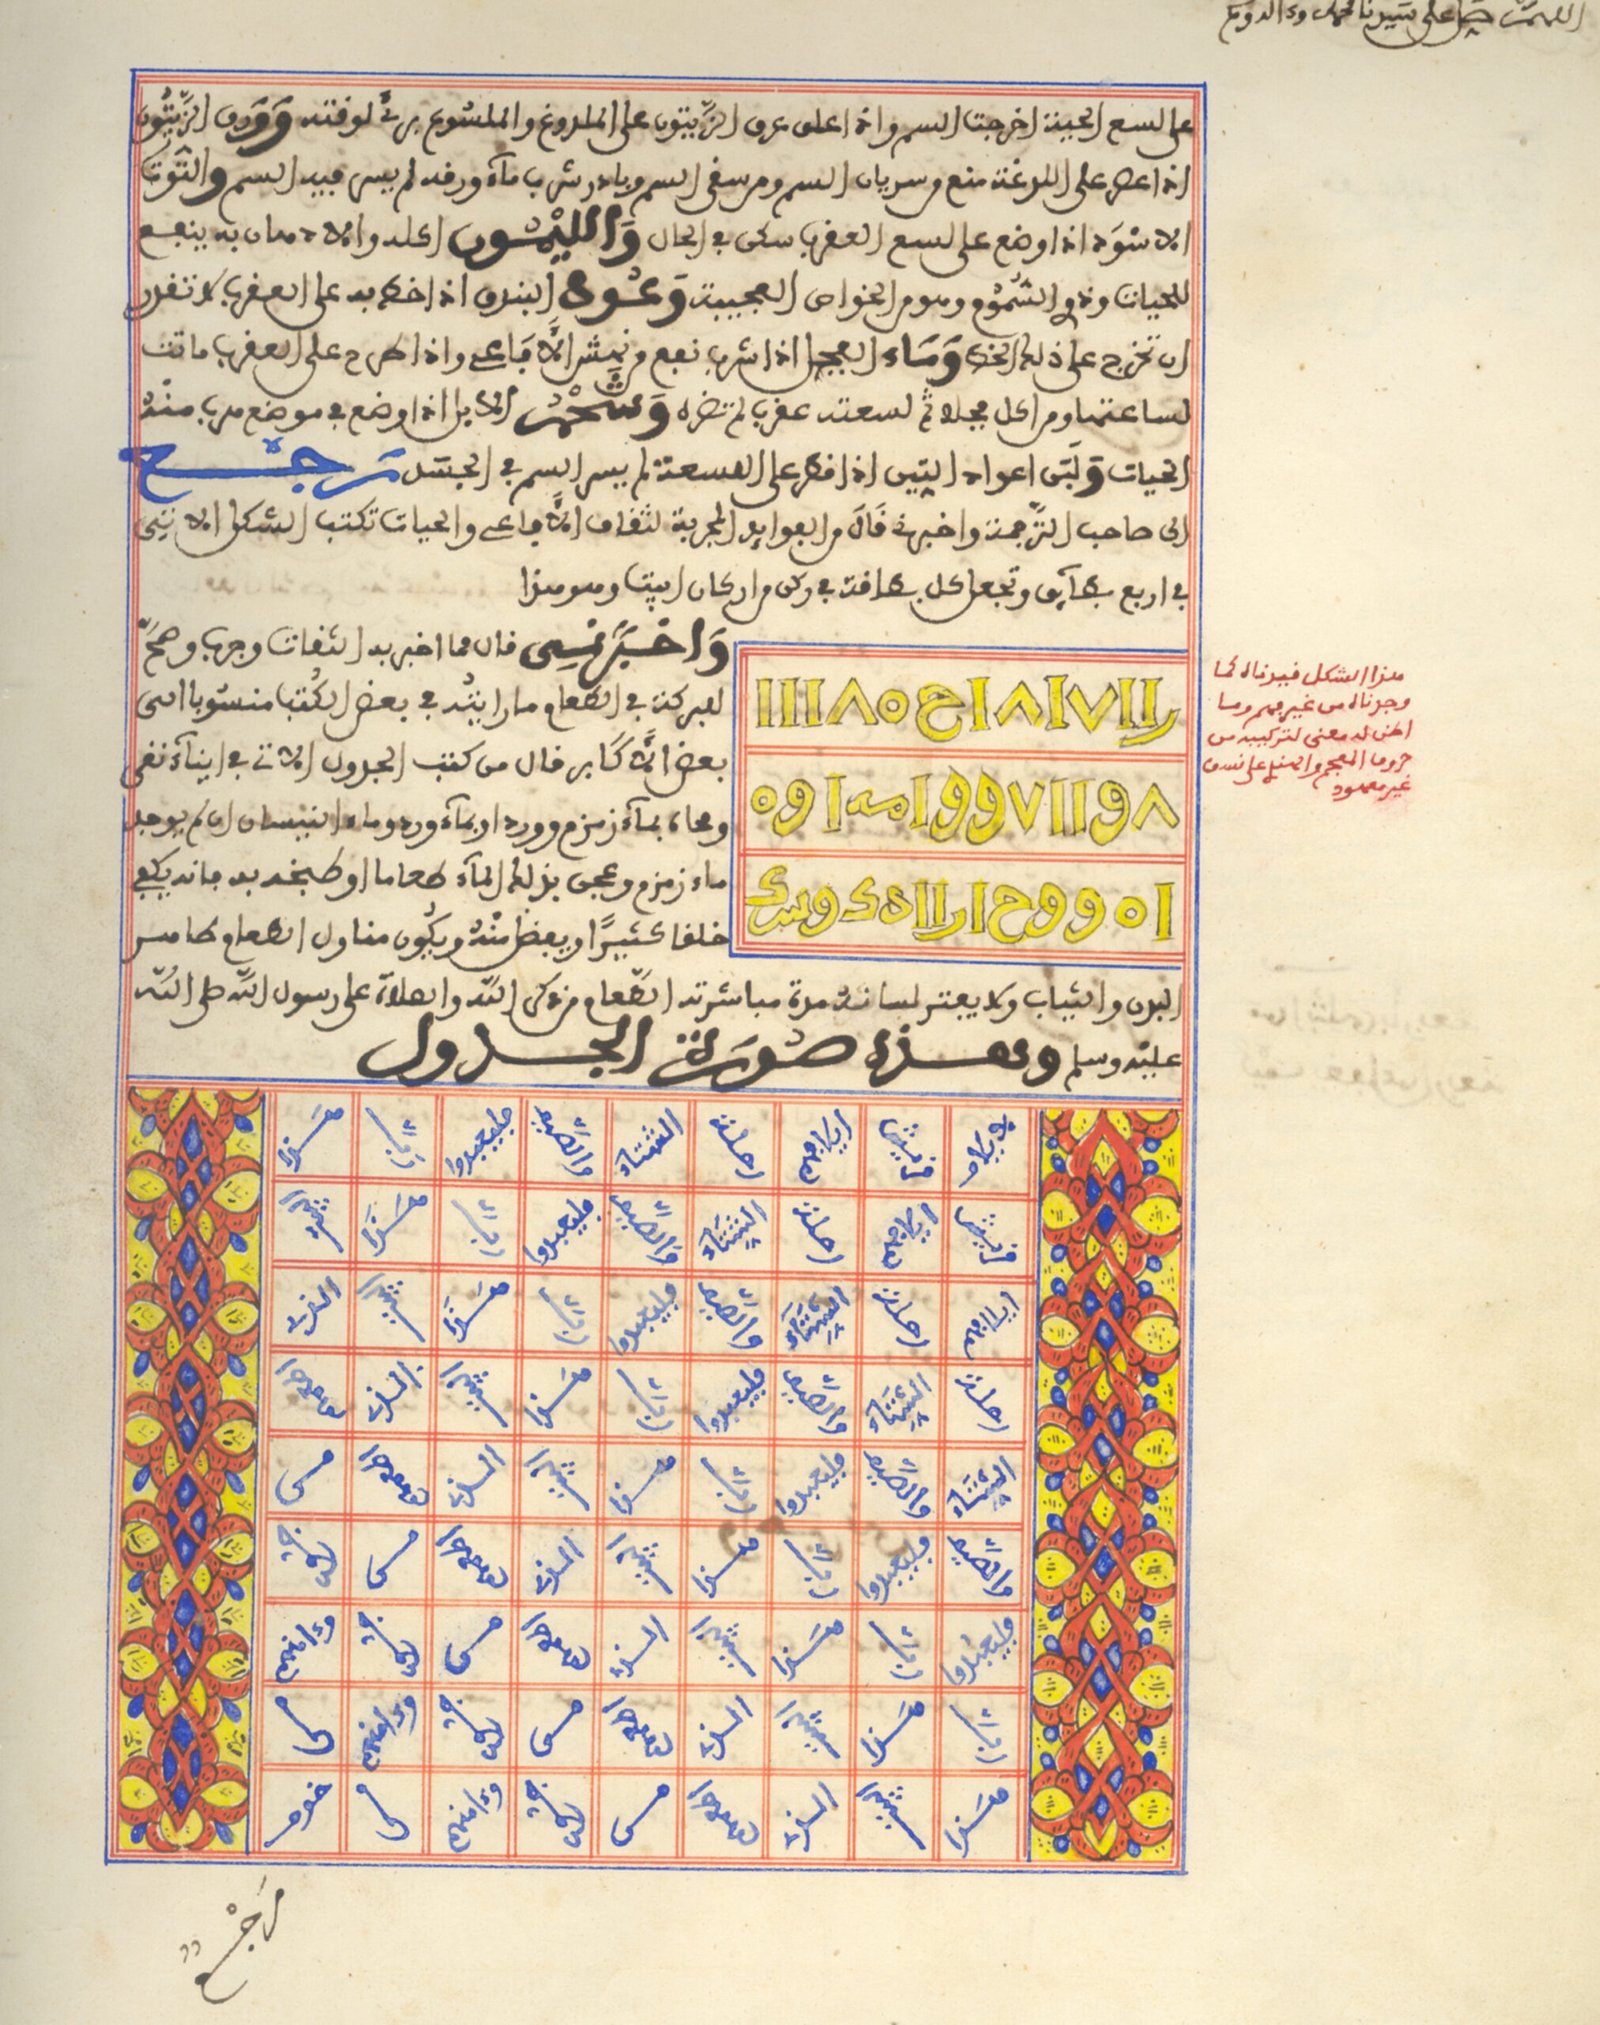 اللهم صل على سيدنا محمد وءاله وسلم
على لسع الحية اخرجت السم واذا علق عرق الزيتون على الملدوغ والملسوع برئ لوقته وورق الزيتون
اذا عصر على اللدغة منع من سريان السم ومن سقي السم وبادر شرب ماء ورقه لم يسر فيه السم والتوت
الاسود اذا وضع على لسع العقرب سكن في الحال والليمون اكله والادهان به ينفع
للحيات وذوي السموم وهو من الخواص العجيبة وعود البندق اذا خط به على العقرب لا تقدر
ان تخرج على ذلك الخط وماء الفجل اذا شرب نفع من نهش الافاعي واذا طرح على العقرب ماتت
لساعتها ومن اكل فجلا ثم لسعته عقرب لم تضره وشحم الايل اذا وضع في موضع هرب منه
الحيات ولبن اعواد التين اذا قطر على اللسعة لم يسر السم في الجسد رجع
الى صاحب الترجمة واخبرني قال من الفوايد المجربة لثقاف الافاعي والحيات تكتب الشكل الاتي
في اربع بطايق وتجعل كل بطاقة في ركن من اركان البيت وهو هذا
واخبرني قال مما اخبر به الثقات وجرب وصح
للبركة في الطعام ما رايته في بعض الكتب منسوبا الى
بعض الاكابر قال من كتب الجدول الاتي في ايناء نقي
ومحاه بماء زمزم وورد او بماء ورد وماء النيسان ان لم يوجد
ماء زمزم وعجن بذلك الماء طعاما او طبخه به فانه يكفي
خلقا كثيرا ويفضل منه ويكون مناول الطعام طاهر
البدن والثياب ولا يفتر لسانه مدة مباشرته الطعام من ذكر الله والصلاة على رسول الله صلى الله
عليه وسلم وهذه صورة الجدول
هذا الشكل قيدناه كما
وجدناه من غير فهم وما
اظن له معنى لتركيبه من
حروف المعجم والصنع على نسق
غير معهود
لايلاف قريش ايلافهم رحلة الشتاء والصيف فليعبدوا رب هذا
قريش ايلافهم رحلة الشتاء والصيف فليعبدوا رب هذا البيت
ايلافهم رحلة الشتاء والصيف فليعبدوا رب هذا البيت الذي
رحلة الشتاء والصيف فليعبدوا رب هذا البيت الذي اطعمهم
الشتاء والصيف فليعبدوا رب هذا البيت الذي اطعمهم من
والصيف فليعبدوا رب هذا البيت الذي اطعمهم من جوع
فليعبدوا رب هذا البيت الذي اطعمهم من جوع وءامنهم
رب هذا البيت الذي اطعمهم من جوع وءامنهم من
هذا البيت الذي اطعمهم من جوع وءامنهم من خوف
رجع